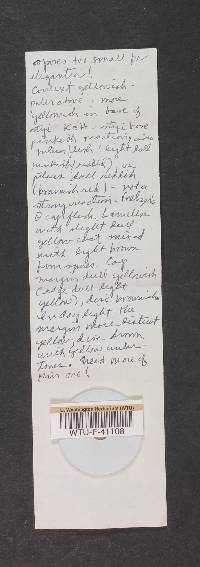 spores too small for
elegantior!
Context yellowish -
pale above, more
yellowish in base of
stipe. KOH - stipe base
pinkish reaction,
flesh (light dull
dull reddish
(brownish red) - not a
strong reaction.
cap flesh. Lamellae
with slight dull
yellow cast mixed
with light brown
from spores. Cap
margin dull yellowish
(edge dull light
yellow), disc brownish
by day light the
margin more distinct
yellow, disc brown
with yellow under
tones. Need more of
this one!
U. Washington Herbarium (WTU)
WTU-F-41108